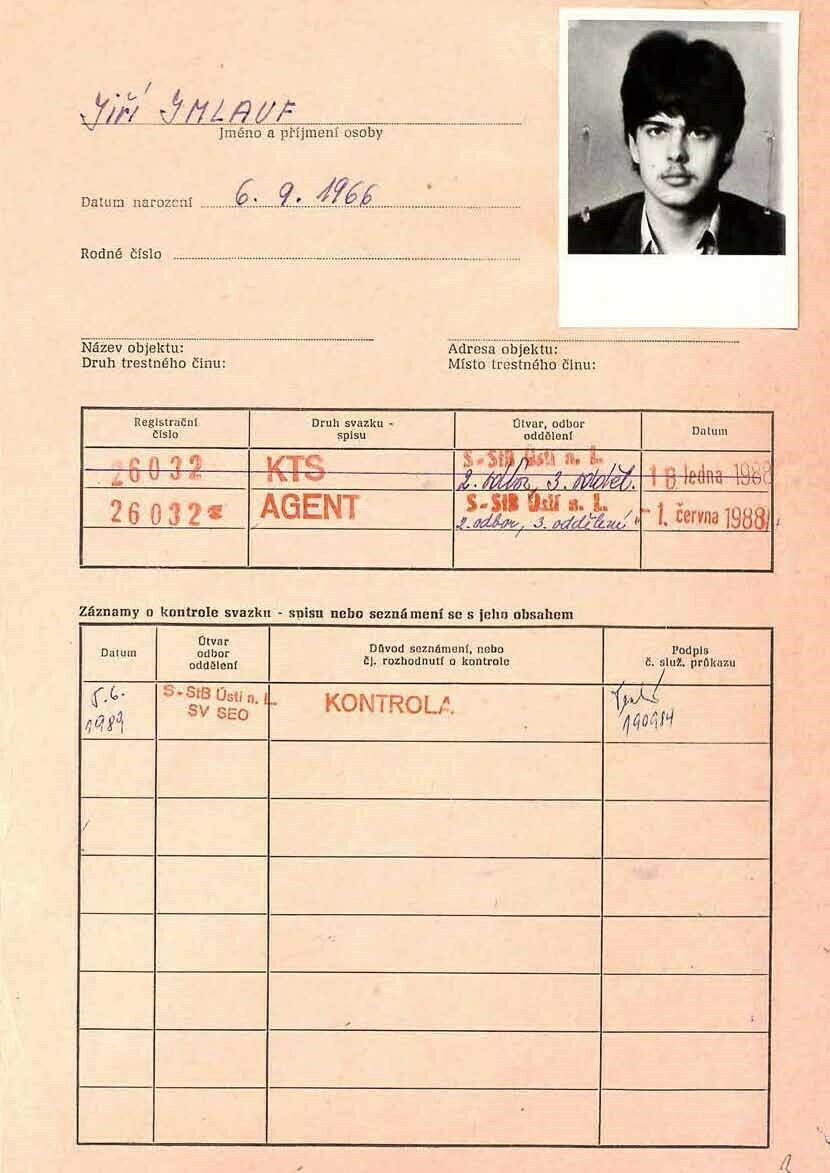 Jiří IMLAUF
Jméno a příjmení osoby
Datum narození 6. 9. 1966
Rodné číslo
Název objektu:
Druh trestného činu:
Adresa objektu:
Místo trestného činu:
Registrační číslo
Druh svazku - spisu
Útvar, odbor oddělení
Datum
26032
KTS
S-StB Ústí n. L.
2. odbor, 3. odděl.
18 ledna 1988
26032
AGENT
S-StB Ústí n. L.
2. odbor, 3. oddělení
-1. června 1988
Záznamy o kontrole svazku - spisu nebo seznámení se s jeho obsahem
Datum
Útvar
odbor
oddělení
Důvod seznámení, nebo
čj. rozhodnutí o kontrole
Podpis
č. služ. průkazu
5.6.
1989
S-StB Ústí n. L.
SV SEO
KONTROLA
190914